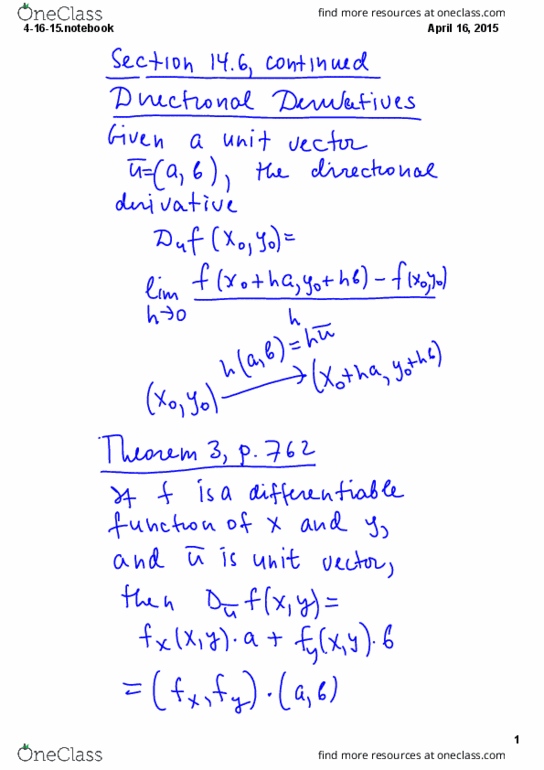 OneClass
find more resources at oneclass.com
4-16-15.notebook
April 16, 2015
Section 14.6, continued
Directional Derivatives
Given a unit vector
u̅=(a, b), the directional
derivative
Dᵤf(x₀, y₀)=
lim h→0 f(x₀+ha, y₀+hb) - f(x₀,y₀) / h
h(a,b)=hu̅
(x₀, y₀) → (x₀+ha, y₀+hb)
Theorem 3, p. 762
If f is a differentiable
function of x and y,
and u̅ is unit vector,
then D_u̅ f(x,y)=
fₓ(x,y)·a + f_y(x,y)·b
=(fₓ, f_y)·(a, b)
1
OneClass
find more resources at oneclass.com